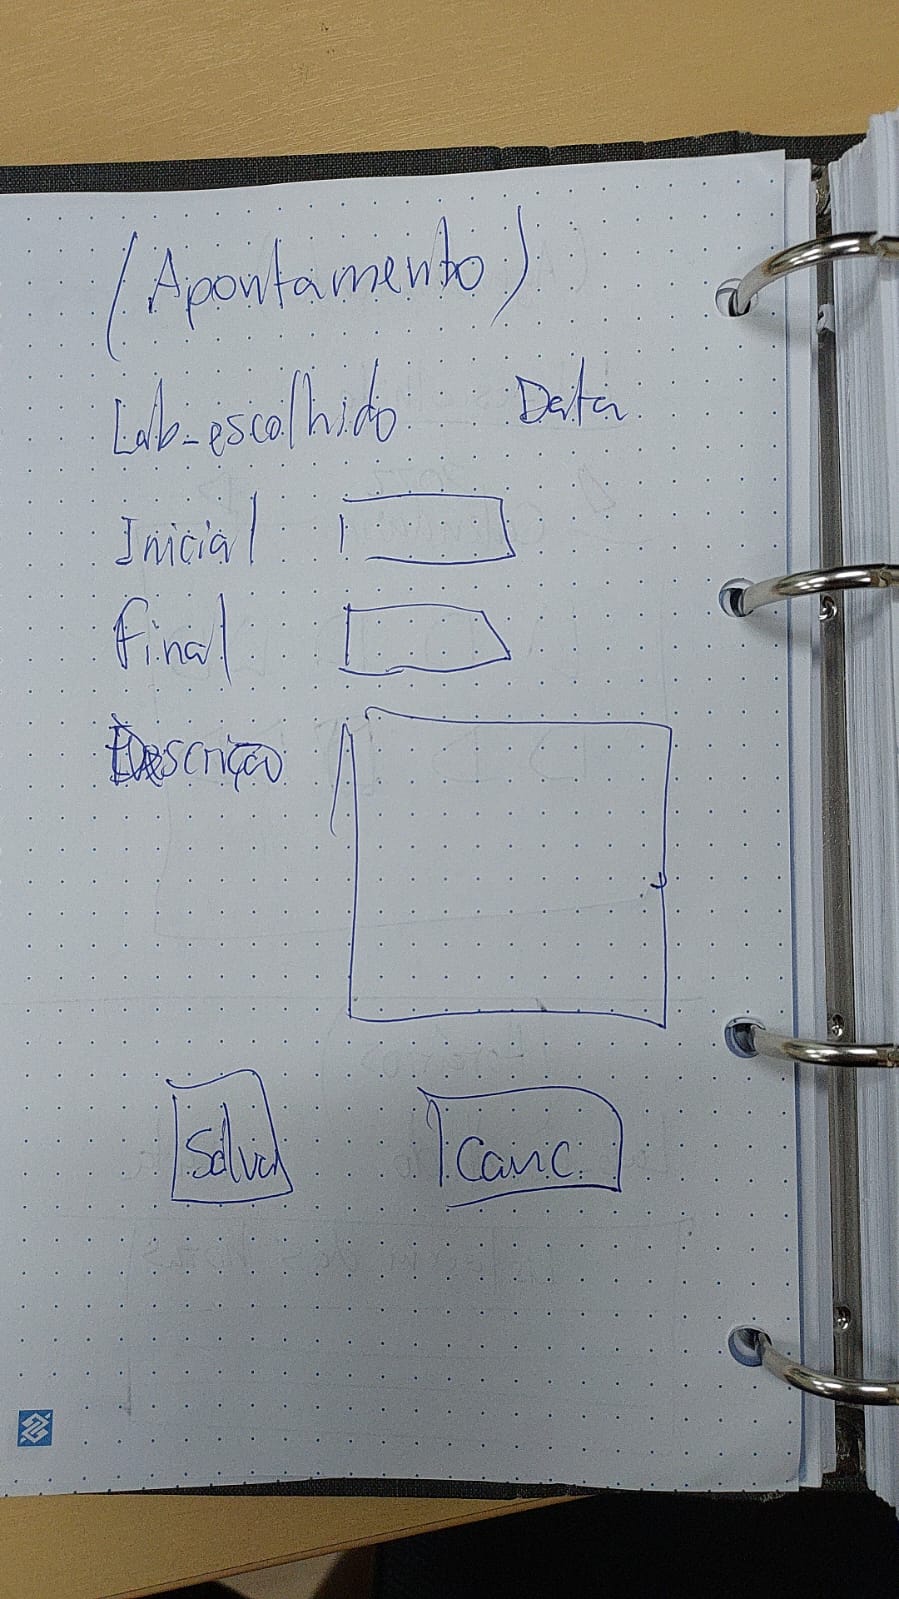 (Apontamento)
Lab_escolhido Data
Inicial
Final
Descrição
Salvar
Canc.